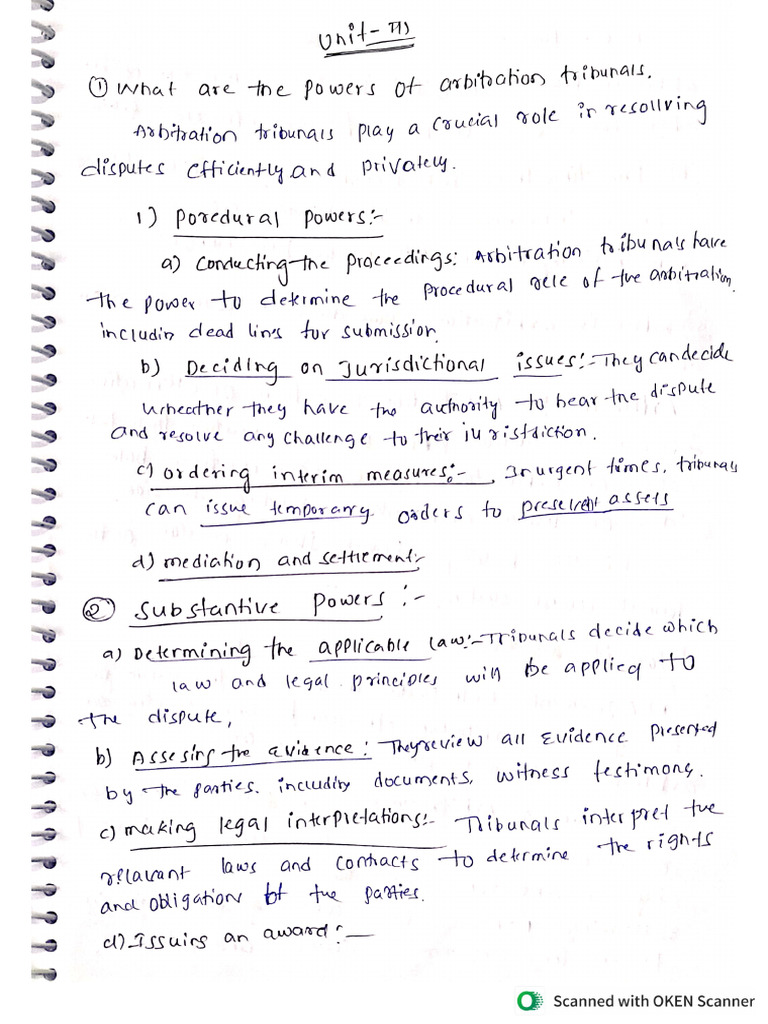 Unit-III
① What are the powers of arbitration tribunals.
Arbitration tribunals play a crucial role in resollving
disputes efficiently and privately.
1) Poredural powers:-
a) Conducting the proceedings: Arbitration tribunals have
the power to determine the procedural role of the arbitration
includin dead lins for submission.
b) Deciding on Jurisdictional issues:- They can decide
wheather they have the authority to hear the dispute
and resolve any challenge to their juristdiction.
c) ordering interim measures:- In urgent times, tribunals
can issue temporary orders to assets
d) mediation and settlement:-
② Substantive powers :-
a) Determining the applicable law:- Tribunals decide which
law and legal principles will be applied to
the dispute,
b) Assesing the evidence: They review all Evidence presented
by the parties. including documents, witness testimony.
c) making legal interpretations:- Tribunals interpret the
relavant laws and contracts to determine the rights
and obligation of the parties.
d) Issuing an award:-
Scanned with OKEN Scanner